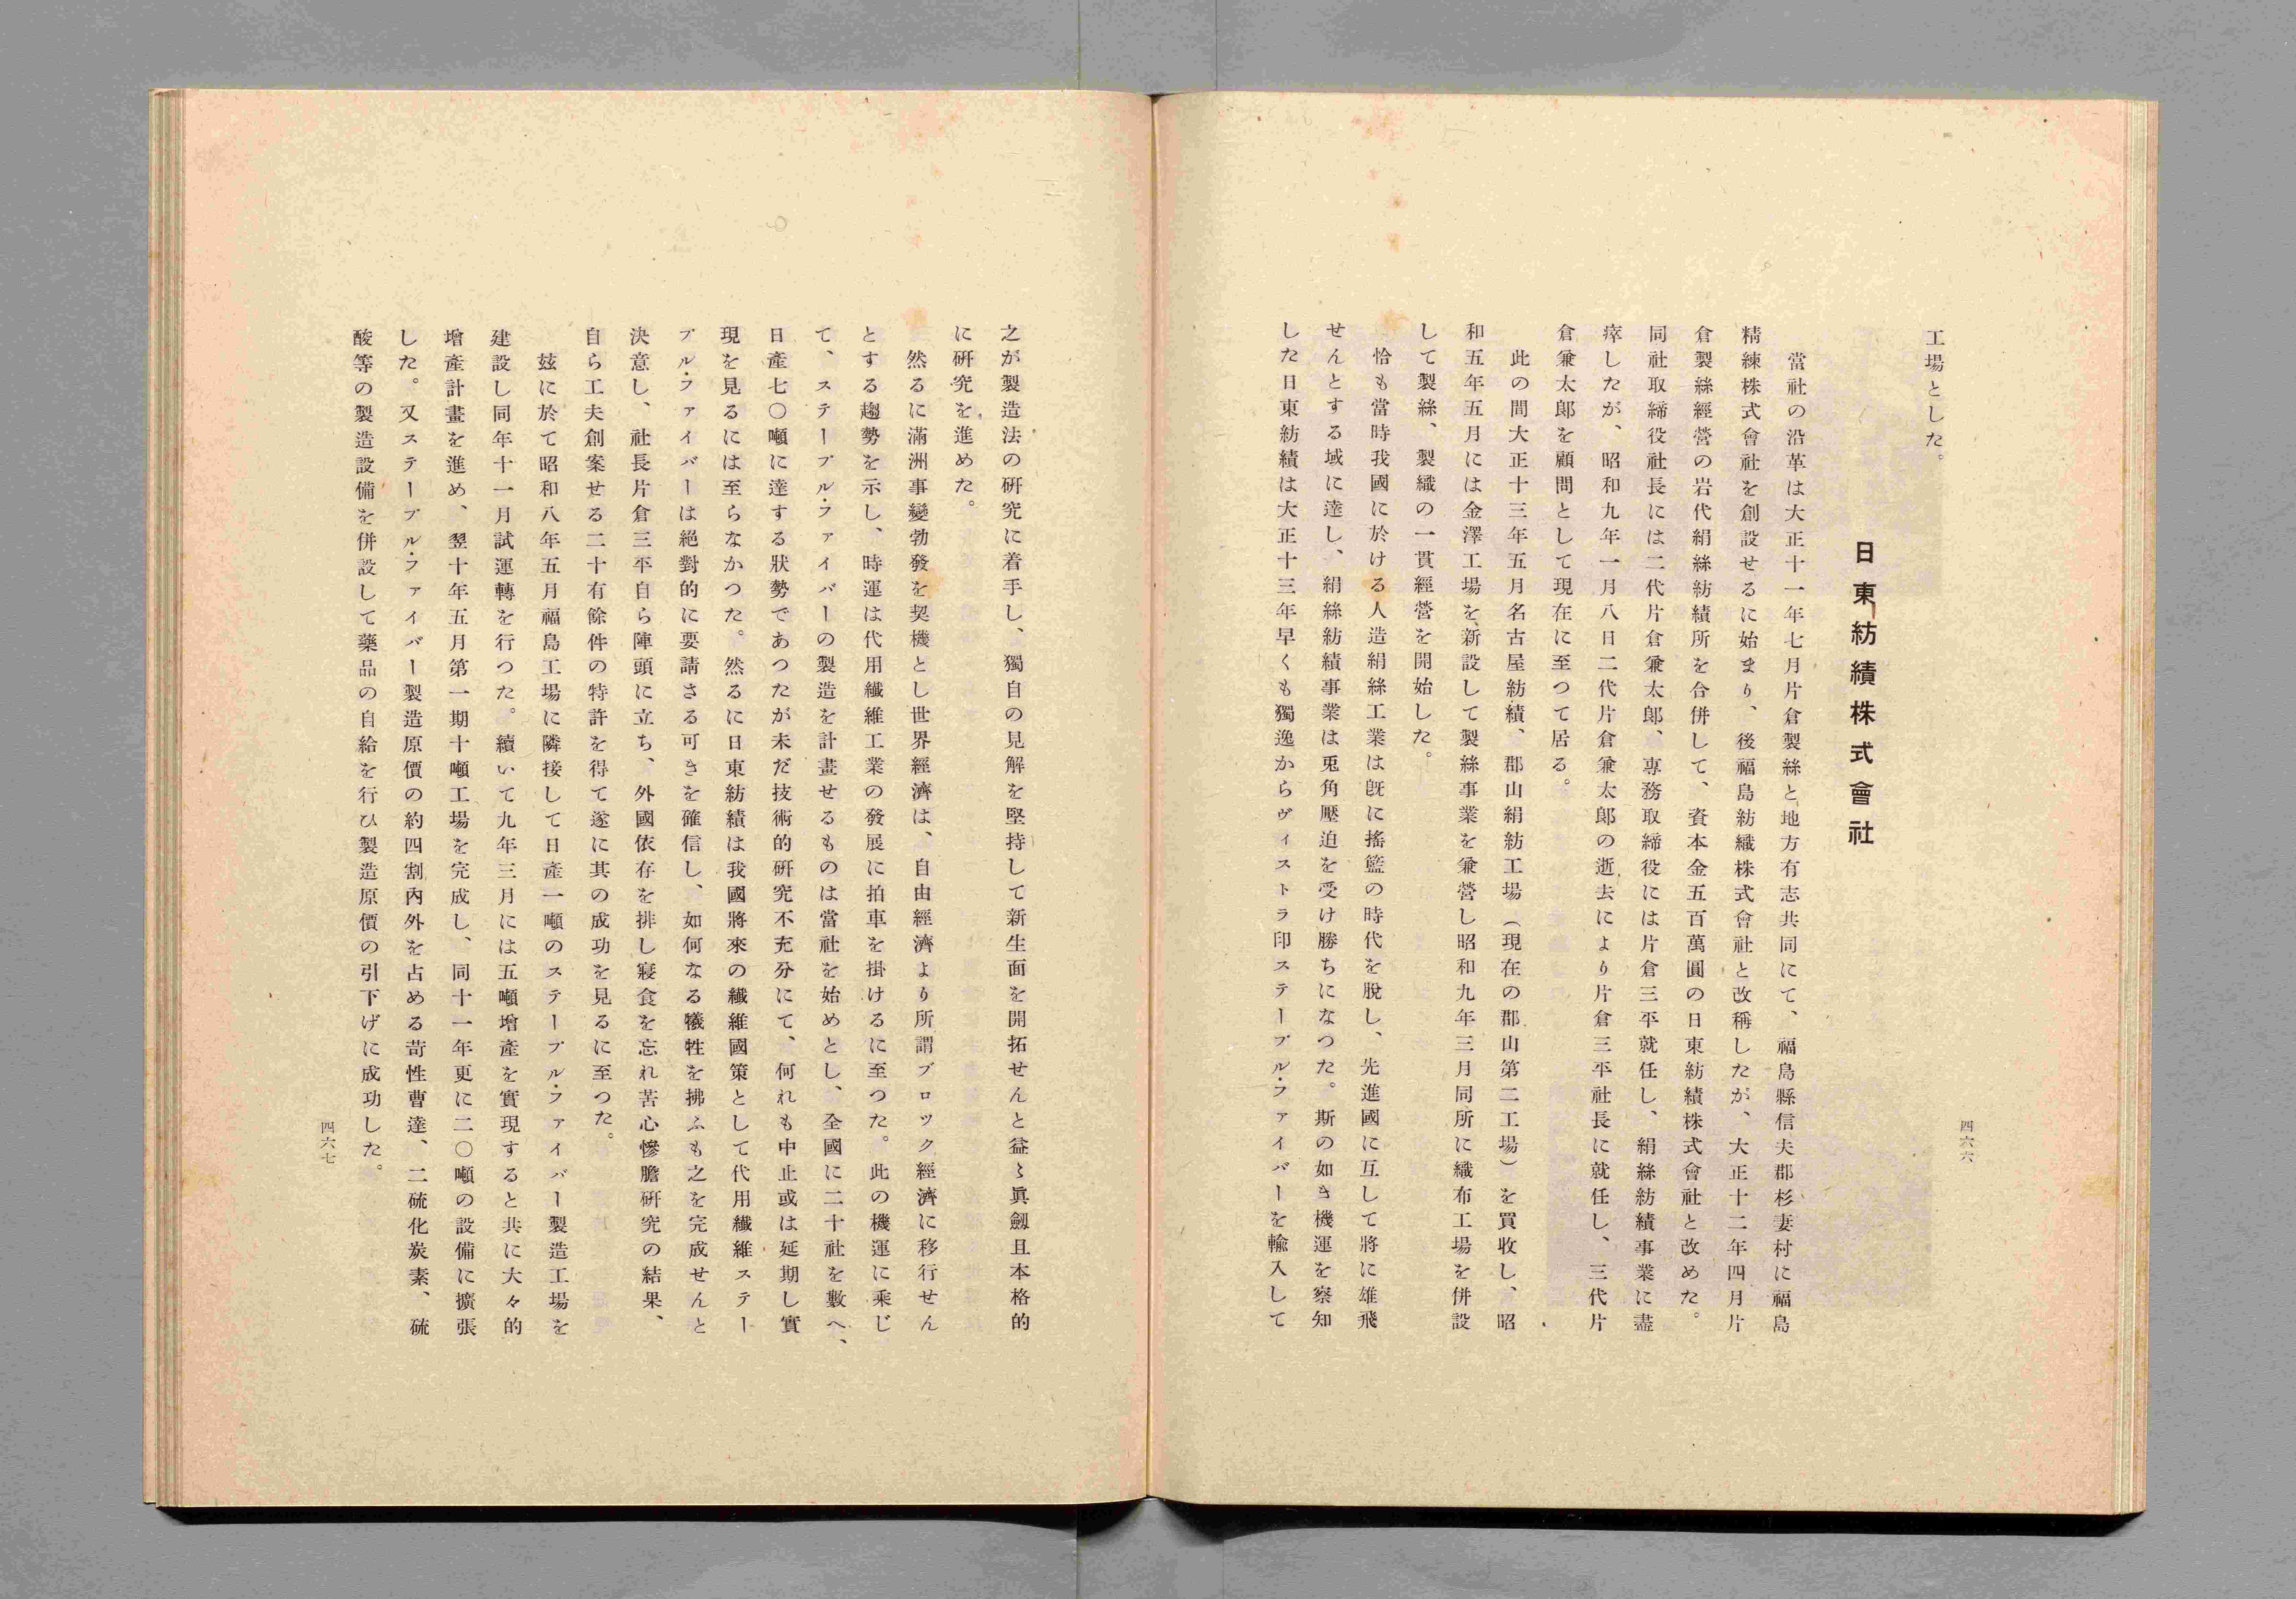 工場とした。
日東紡績株式會社
當社の沿革は大正十一年七月片倉製絲と地方有志共同にて、福島縣信夫郡杉妻村に福島
精練株式會社を創設せるに始まり、後福島紡織株式會社と改稱したが、大正十二年四月片
倉製絲經營の岩代絹絲紡績所を合併して、資本金五百萬圓の日東紡績株式會社と改めた。
同社取締役社長には二代片倉兼太郞、專務取締役には片倉三平就任し、絹絲紡績事業に盡
瘁したが、昭和九年一月八日二代片倉兼太郞の逝去により片倉三平社長に就任し、三代片
倉兼太郞を顧問として現在に至つて居る。
此の間大正十三年五月名古屋紡績、郡山絹紡工場（現在の郡山第二工場）を買收し、昭
和五年五月には金澤工場を新設して製絲事業を兼營し昭和九年三月同所に織布工場を併設
して製絲、製織の一貫經營を開始した。
恰も當時我國に於ける人造絹絲工業は旣に搖籃の時代を脫し、先進國に互して將に雄飛
せんとする域に達し、絹絲紡績事業は兎角壓迫を受け勝ちになつた。斯の如き機運を察知
した日東紡績は大正十三年早くも獨逸からヴィストラ印ステープル・ファイバーを輸入して
四六六
之が製造法の硏究に着手し、獨自の見解を堅持して新生面を開拓せんと益〻眞劔且本格的
に硏究を進めた。
然るに滿洲事變勃發を契機とし世界經濟は、自由經濟より所謂ブロック經濟に移行せん
とする趨勢を示し、時運は代用纖維工業の發展に拍車を掛けるに至つた。此の機運に乘じ
て、ステープル・ファイバーの製造を計畫せるものは當社を始めとし、全國に二十社を數へ、
日產七〇噸に達する狀勢であつたが未だ技術的硏究不充分にて、何れも中止或は延期し實
現を見るには至らなかつた。然るに日東紡績は我國將來の纖維國策として代用纖維ステー
プル・ファイバーは絕對的に要請さる可きを確信し、如何なる犧牲を拂ふも之を完成せんと
決意し、社長片倉三平自ら陣頭に立ち、外國依存を排し寢食を忘れ苦心慘膽硏究の結果、
自ら工夫創案せる二十有餘件の特許を得て遂に其の成功を見るに至つた。
玆に於て昭和八年五月福島工場に隣接して日產一噸のステープル・ファイバー製造工場を
建設し同年十一月試運轉を行つた。續いて九年三月には五噸增產を實現すると共に大々的
增產計畫を進め、翌十年五月第一期十噸工場を完成し、同十一年更に二〇噸の設備に擴張
した。又ステープル・ファイバー製造原價の約四割內外を占める苛性曹達、二硫化炭素、硫
酸等の製造設備を併設して藥品の自給を行ひ製造原價の引下げに成功した。
四六七